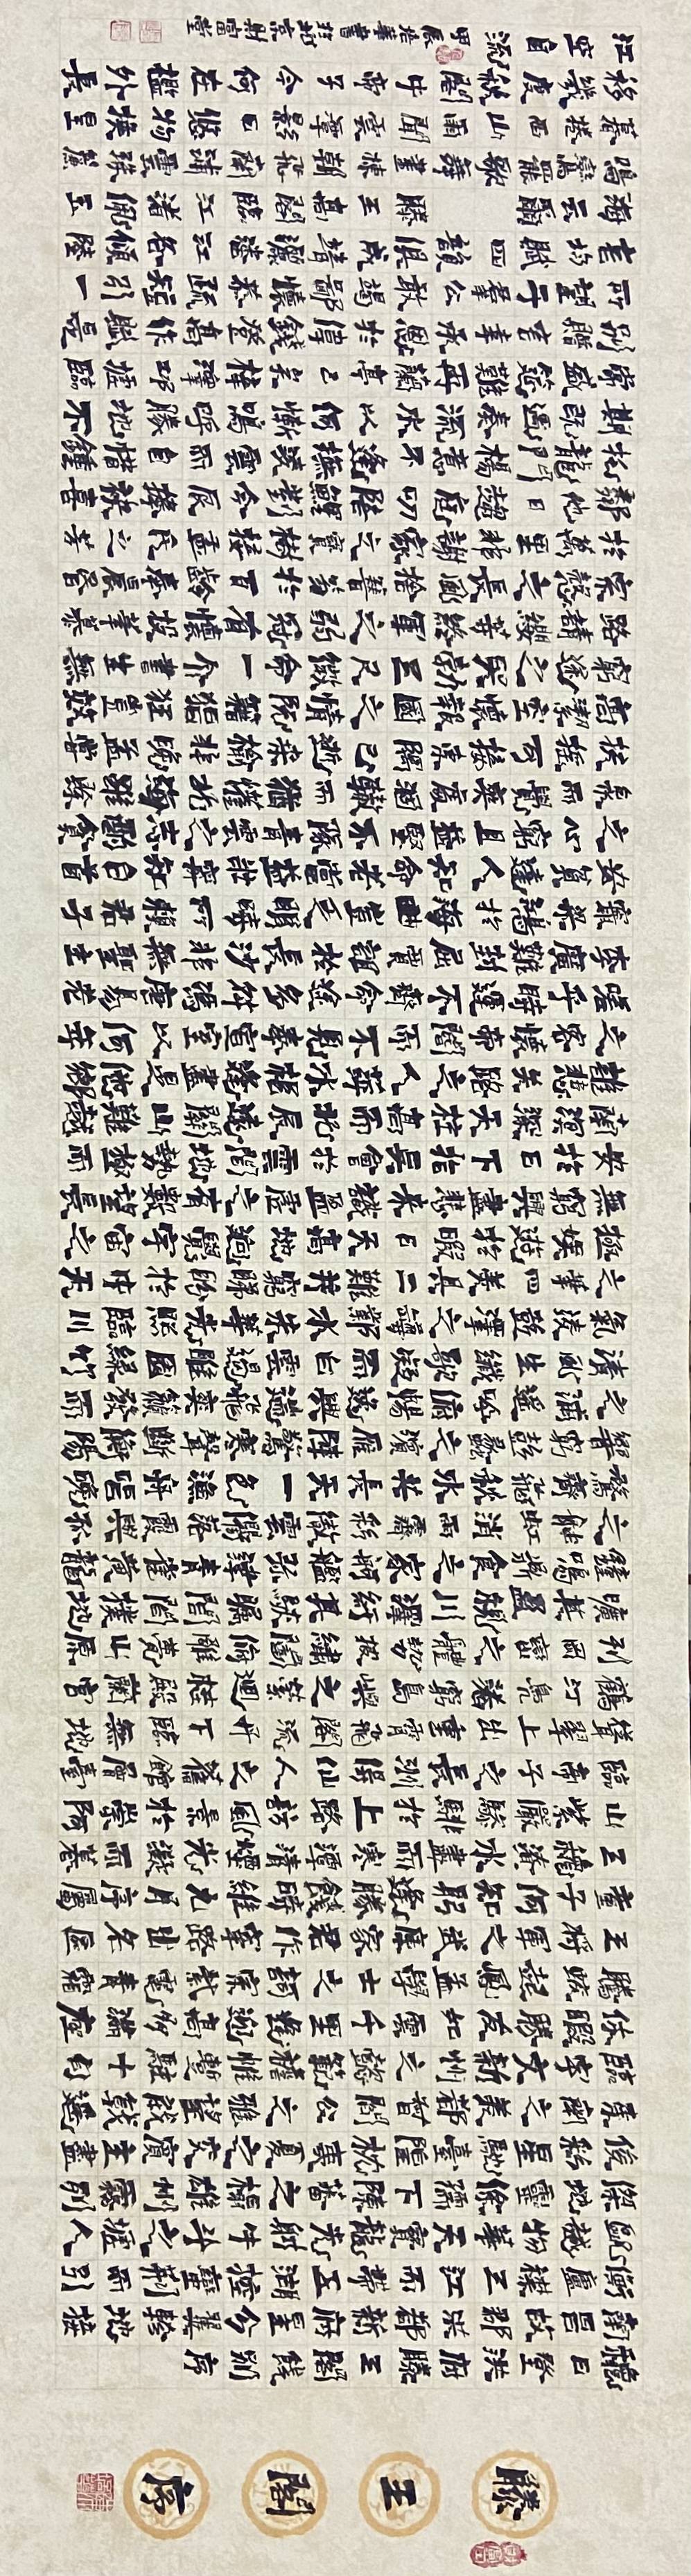 滕王閣序
秋日登洪府滕王閣餞別序
南昌故郡洪都新府星分翼軫地接
衡廬襟三江而帶五湖控蠻荊而引
甌越物華天寶龍光射牛斗之墟人
傑地靈徐孺下陳蕃之榻雄州霧列
俊彩星馳臺隍枕夷夏之交賓主盡
東南之美都督閻公之雅望棨戟遙
臨宇文新州之懿範襜帷暫駐十旬
休暇勝友如雲千里逢迎高朋滿座
騰蛟起鳳孟學士之詞宗紫電青霜
王將軍之武庫家君作宰路出名區
童子何知躬逢勝餞時維九月序屬
三秋潦水盡而寒潭清煙光凝而暮
山紫儼驂騑於上路訪風景於崇阿
臨帝子之長洲得仙人之舊館層臺
聳翠上出重霄飛閣流丹下臨無地
鶴汀鳧渚窮島嶼之縈迴桂殿蘭宮
列岡巒之體勢披繡闥俯雕甍山原
曠其盈視川澤紆其駭矚閭閻撲地
鐘鳴鼎食之家舸艦彌津青雀黃龍
之舳虹消雨霽彩徹雲衢落霞與孤
鶩齊飛秋水共長天一色漁舟唱晚
響窮彭蠡之濱雁陣驚寒聲斷衡陽
之浦遙吟俯暢逸興遄飛爽籟發而
清風生纖歌凝而白雲遏睢園綠竹
氣凌彭澤之樽鄴水朱華光照臨川
之筆四美具二難并窮睇眄於中天
極娛遊於暇日天高地迥覺宇宙之
無窮興盡悲來識盈虛之有數望長
安於日下指吳會於雲間地勢極而
南溟深天柱高而北辰遠關山難越
誰悲失路之人萍水相逢盡是他鄉
之客懷帝閽而不見奉宣室以何年
嗟乎時運不齊命途多舛馮唐易老
李廣難封屈賈誼於長沙非無聖主
竄梁鴻於海曲豈乏明時所賴君子
安貧達人知命老當益壯寧知白首
之心窮且益堅不墜青雲之志酌貪
泉而覺爽處涸轍而猶懽北海雖賒
扶搖可接東隅已逝桑榆非晚孟嘗
高潔空懷報國之情阮籍猖狂豈效
窮途之哭勃三尺微命一介書生無
路請纓等終軍之弱冠有懷投筆慕
宗愨之長風捨簪笏於百齡奉晨昏
於萬里非謝家之寶樹接孟氏之芳
鄰他日趨庭叨陪鯉對今辰捧袂喜
托龍門楊意不逢撫凌雲而自惜鍾
期既遇奏流水以何慚嗚呼勝地不
常盛筵難再蘭亭已矣梓澤邱墟臨
別贈言幸承恩於偉餞登高作賦是
所望於群公敢竭鄙懷恭疏短引一
言均賦四韻俱成請灑潘江各傾陸
海云爾 滕王高閣臨江渚佩玉
鳴鸞罷歌舞畫棟朝飛南浦雲珠簾
暮捲西山雨閒雲潭影日悠悠物換星
移幾度秋閣中帝子今何在檻外長
江空自流
甲辰 書於北京 堂